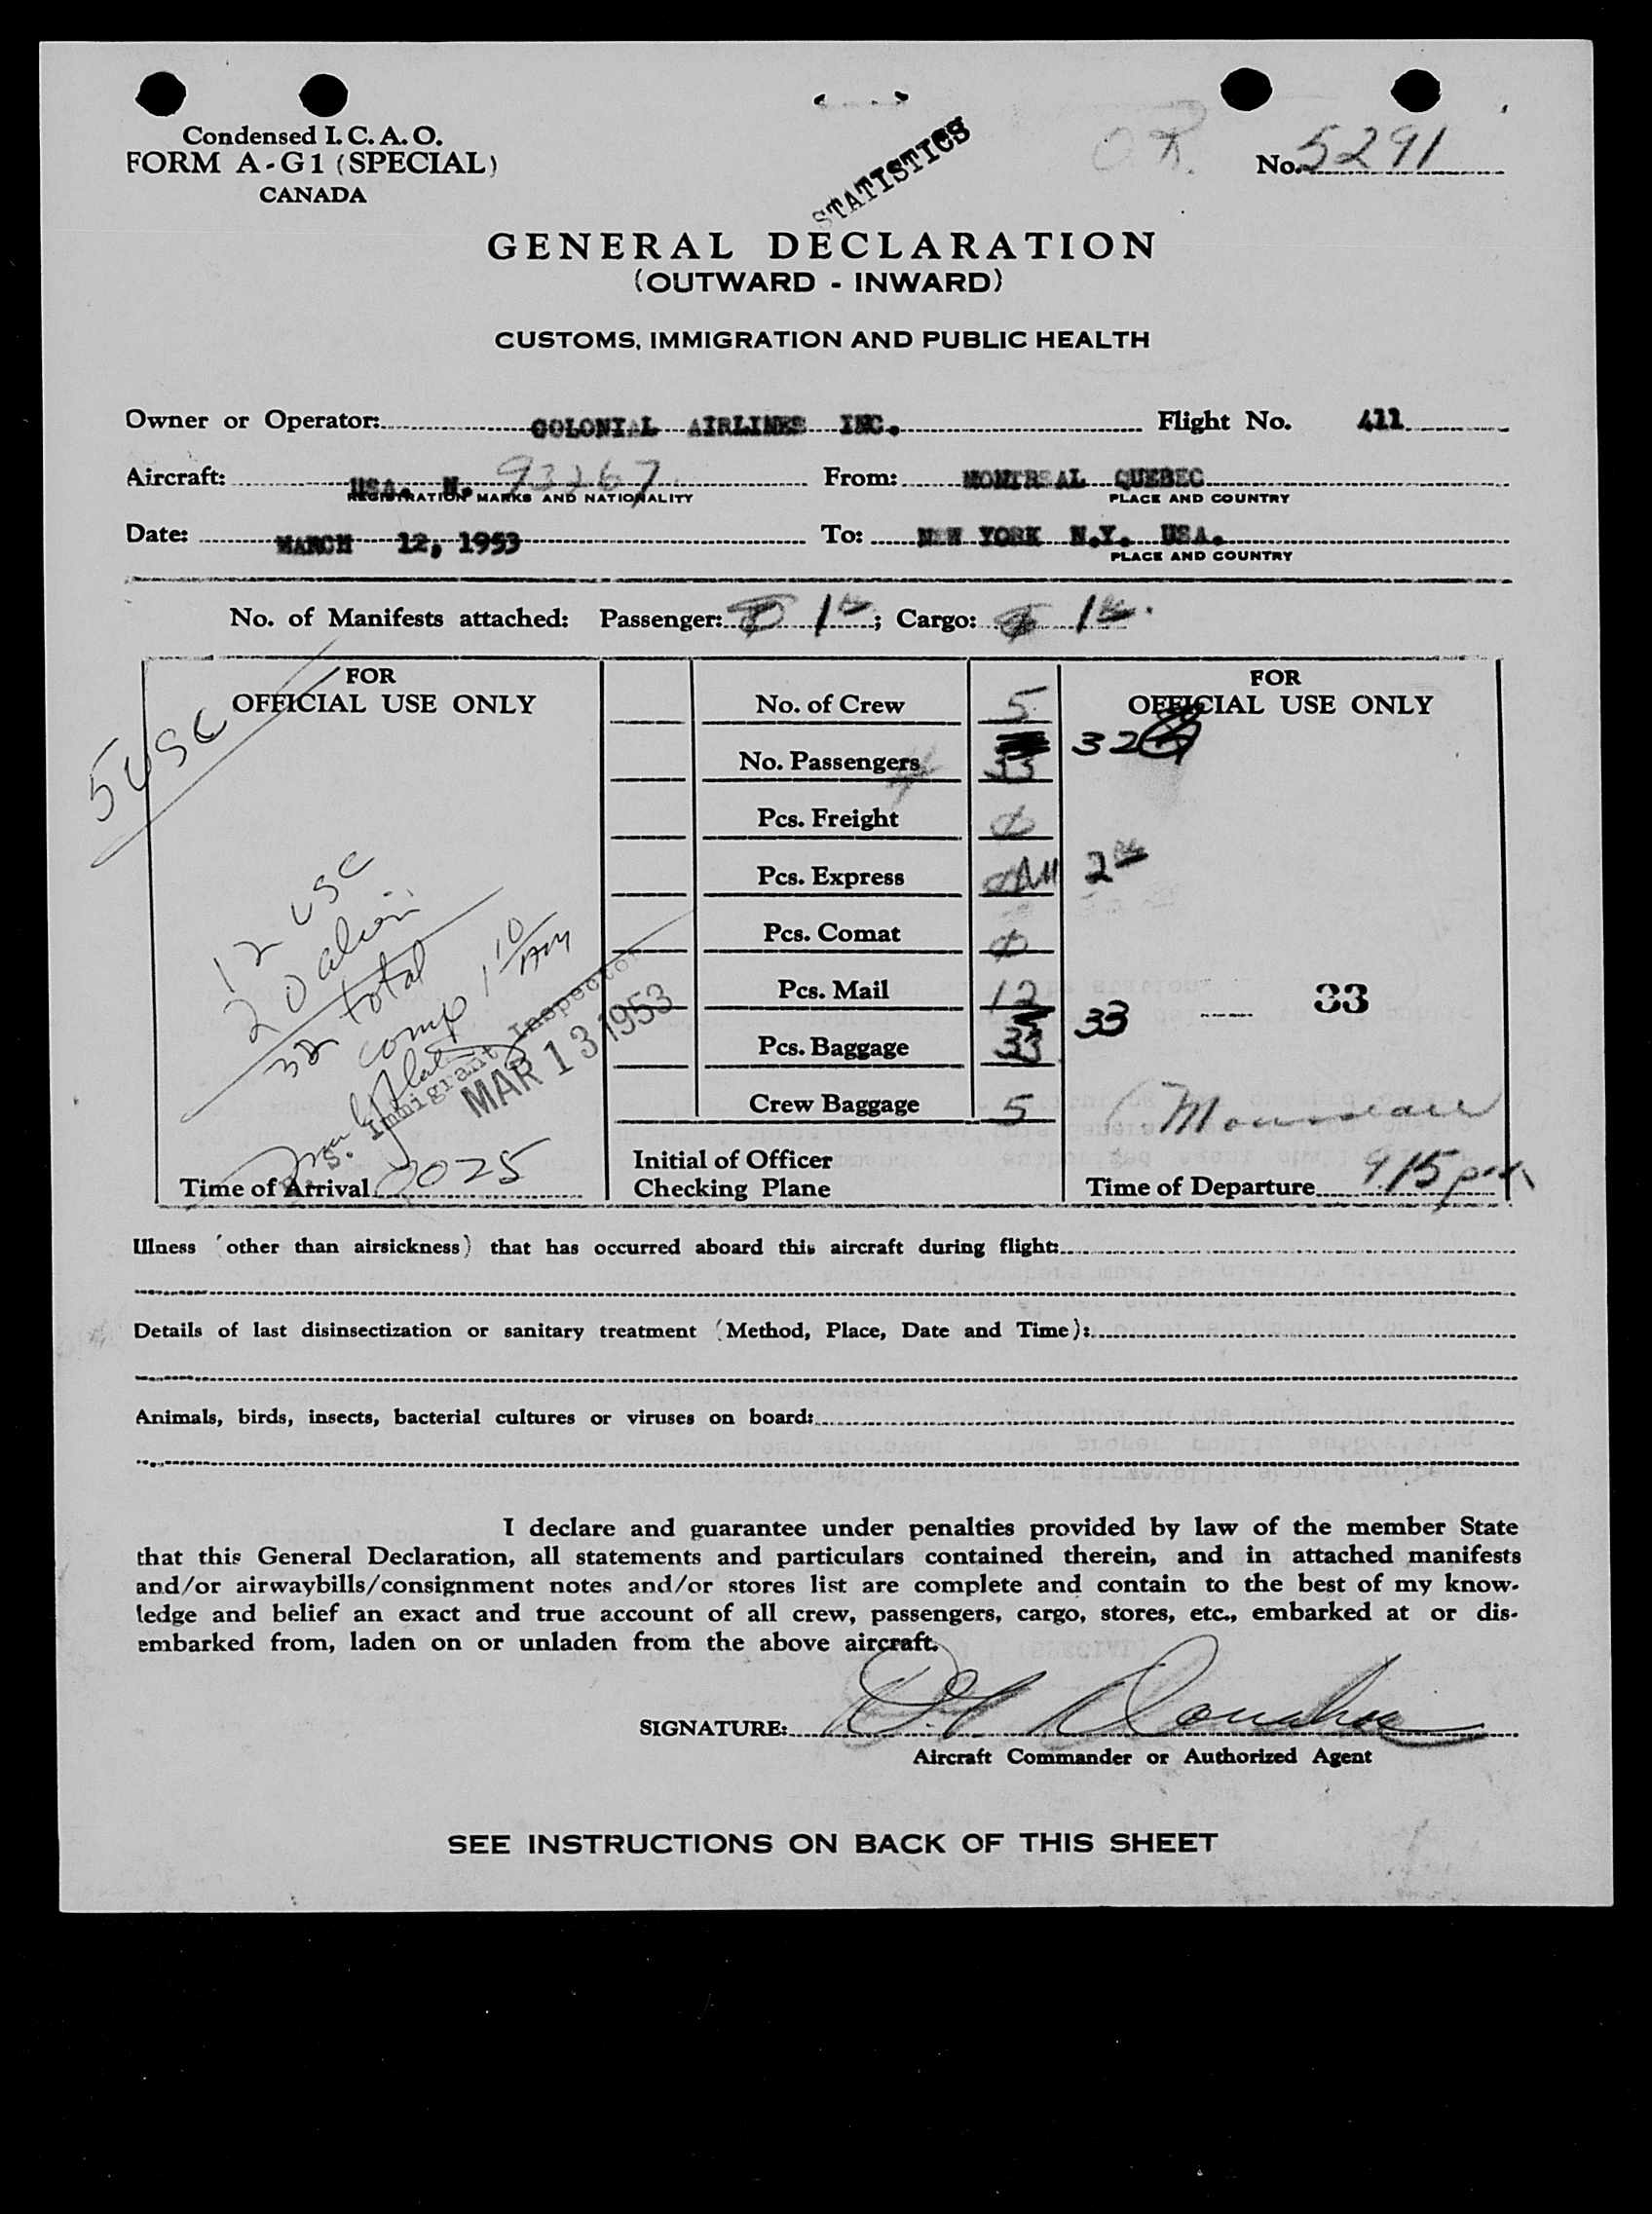 Condensed I. C. A. O.
FORM A-G1 (SPECIAL)
CANADA
STATISTICS
No. 5291
GENERAL DECLARATION
(OUTWARD - INWARD)
CUSTOMS, IMMIGRATION AND PUBLIC HEALTH
Owner or Operator: COLONIAL AIRLINES INC. Flight No. 411
Aircraft: USA. N. 93267 From: MONTREAL QUEBEC
REGISTRATION MARKS AND NATIONALITY PLACE AND COUNTRY
Date: MARCH 12, 1953 To: NEW YORK N.Y. USA.
PLACE AND COUNTRY
No. of Manifests attached: Passenger: 1 ; Cargo: 1
FOR
OFFICIAL USE ONLY
5 USC
12 USC
20 alien
32 total
comp 1 10 AM
U.S. Immigrant Inspector
MAR 13 1953
Time of Arrival 0025
No. of Crew 5
No. Passengers 33 32
Pcs. Freight 0
Pcs. Express 2
Pcs. Comat 0
Pcs. Mail 12
Pcs. Baggage 33 33
Crew Baggage 5
Initial of Officer
Checking Plane
FOR
OFFICIAL USE ONLY
33
Time of Departure 9.15 pm
Illness (other than airsickness) that has occurred aboard this aircraft during flight:
Details of last disinsectization or sanitary treatment (Method, Place, Date and Time):
Animals, birds, insects, bacterial cultures or viruses on board:
I declare and guarantee under penalties provided by law of the member State
that this General Declaration, all statements and particulars contained therein, and in attached manifests
and/or airwaybills/consignment notes and/or stores list are complete and contain to the best of my know-
ledge and belief an exact and true account of all crew, passengers, cargo, stores, etc., embarked at or dis-
embarked from, laden on or unladen from the above aircraft.
SIGNATURE: Donahue
Aircraft Commander or Authorized Agent
SEE INSTRUCTIONS ON BACK OF THIS SHEET